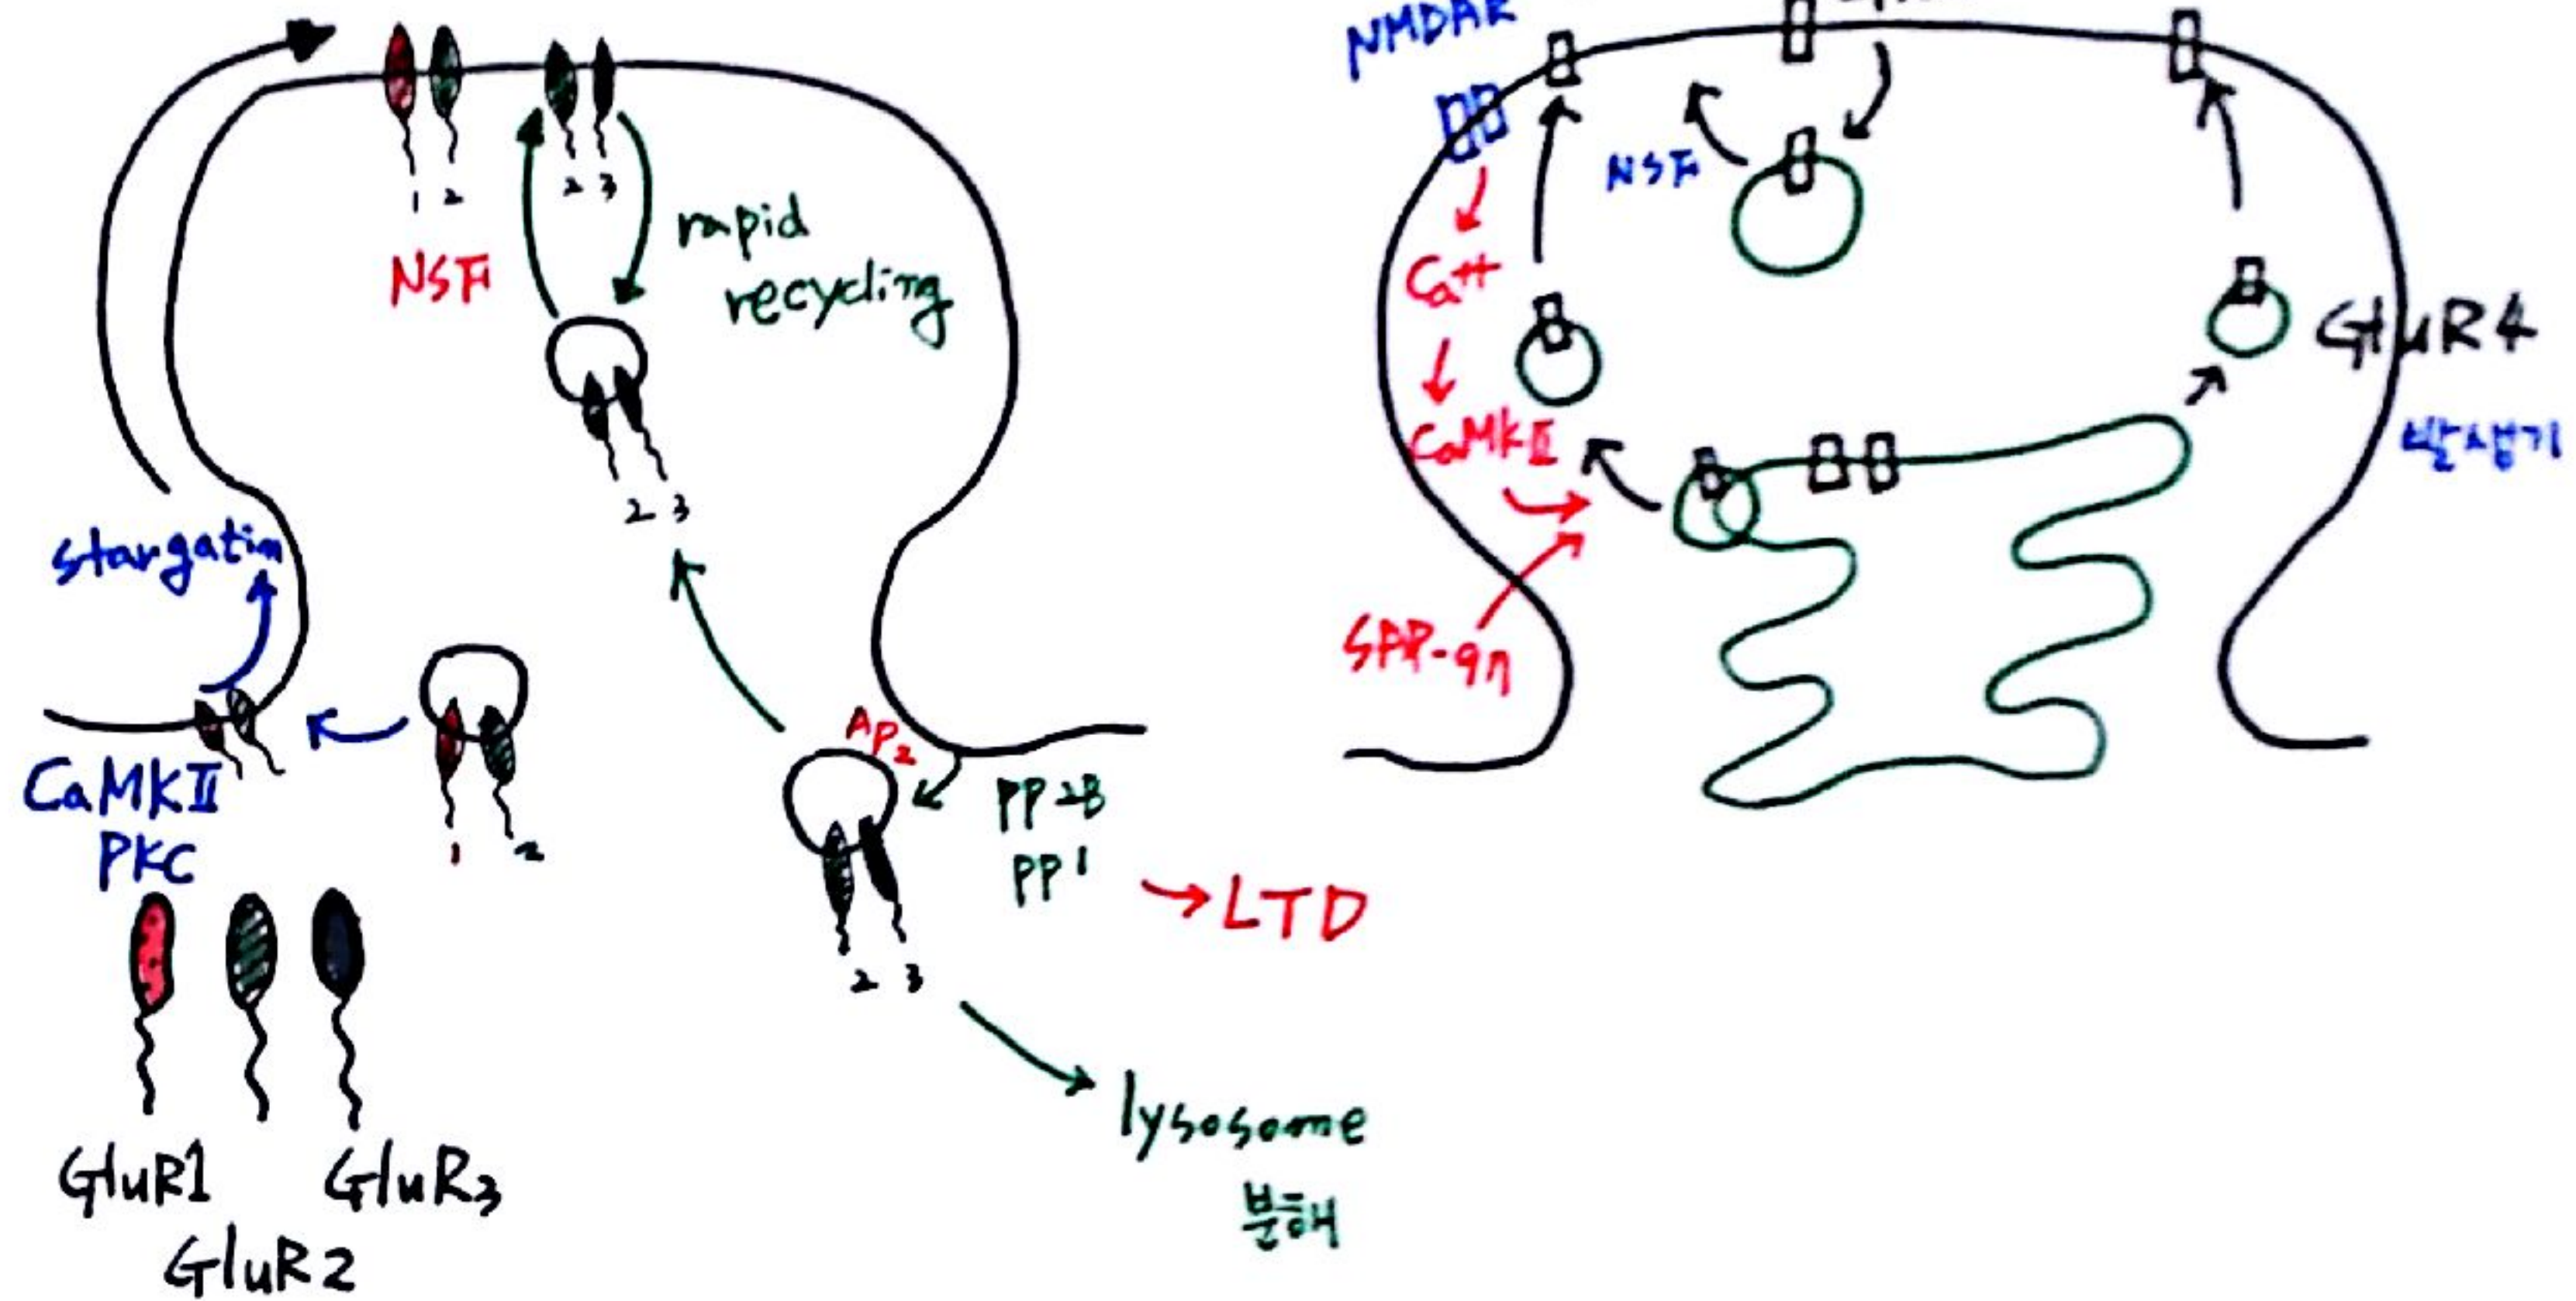 1 2
2 3
NSF
rapid
recycling
2 3
stargatin
CaMKII
PKC
1 2
AP2
PP2B
PP1
→ LTD
2 3
lysosome
분해
GluR1
GluR3
GluR2
NMDAR
NSF
Ca++
CaMKII
SAP-97
GluR4
발생기